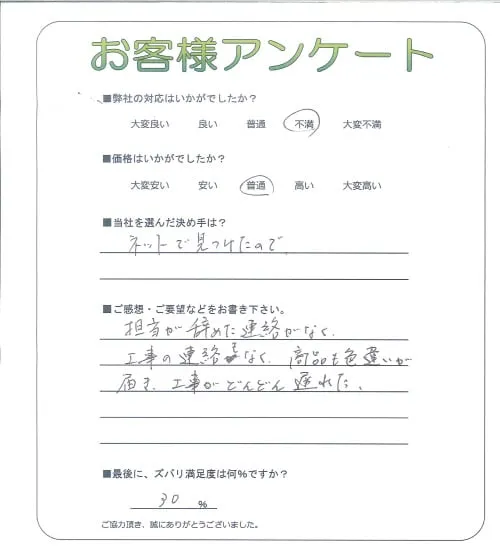 お客様アンケート
■弊社の対応はいかがでしたか？
大変良い 良い 普通 不満 大変不満
■価格はいかがでしたか？
大変安い 安い 普通 高い 大変高い
■当社を選んだ決め手は？
ネットで見つけたので
■ご感想・ご要望などをお書き下さい。
担当が辞めた連絡がなく、
工事の連絡もなく、商品も色違いが
届き、工事がどんどん遅れた。
■最後に、ズバリ満足度は何%ですか？
30 %
ご協力頂き、誠にありがとうございました。